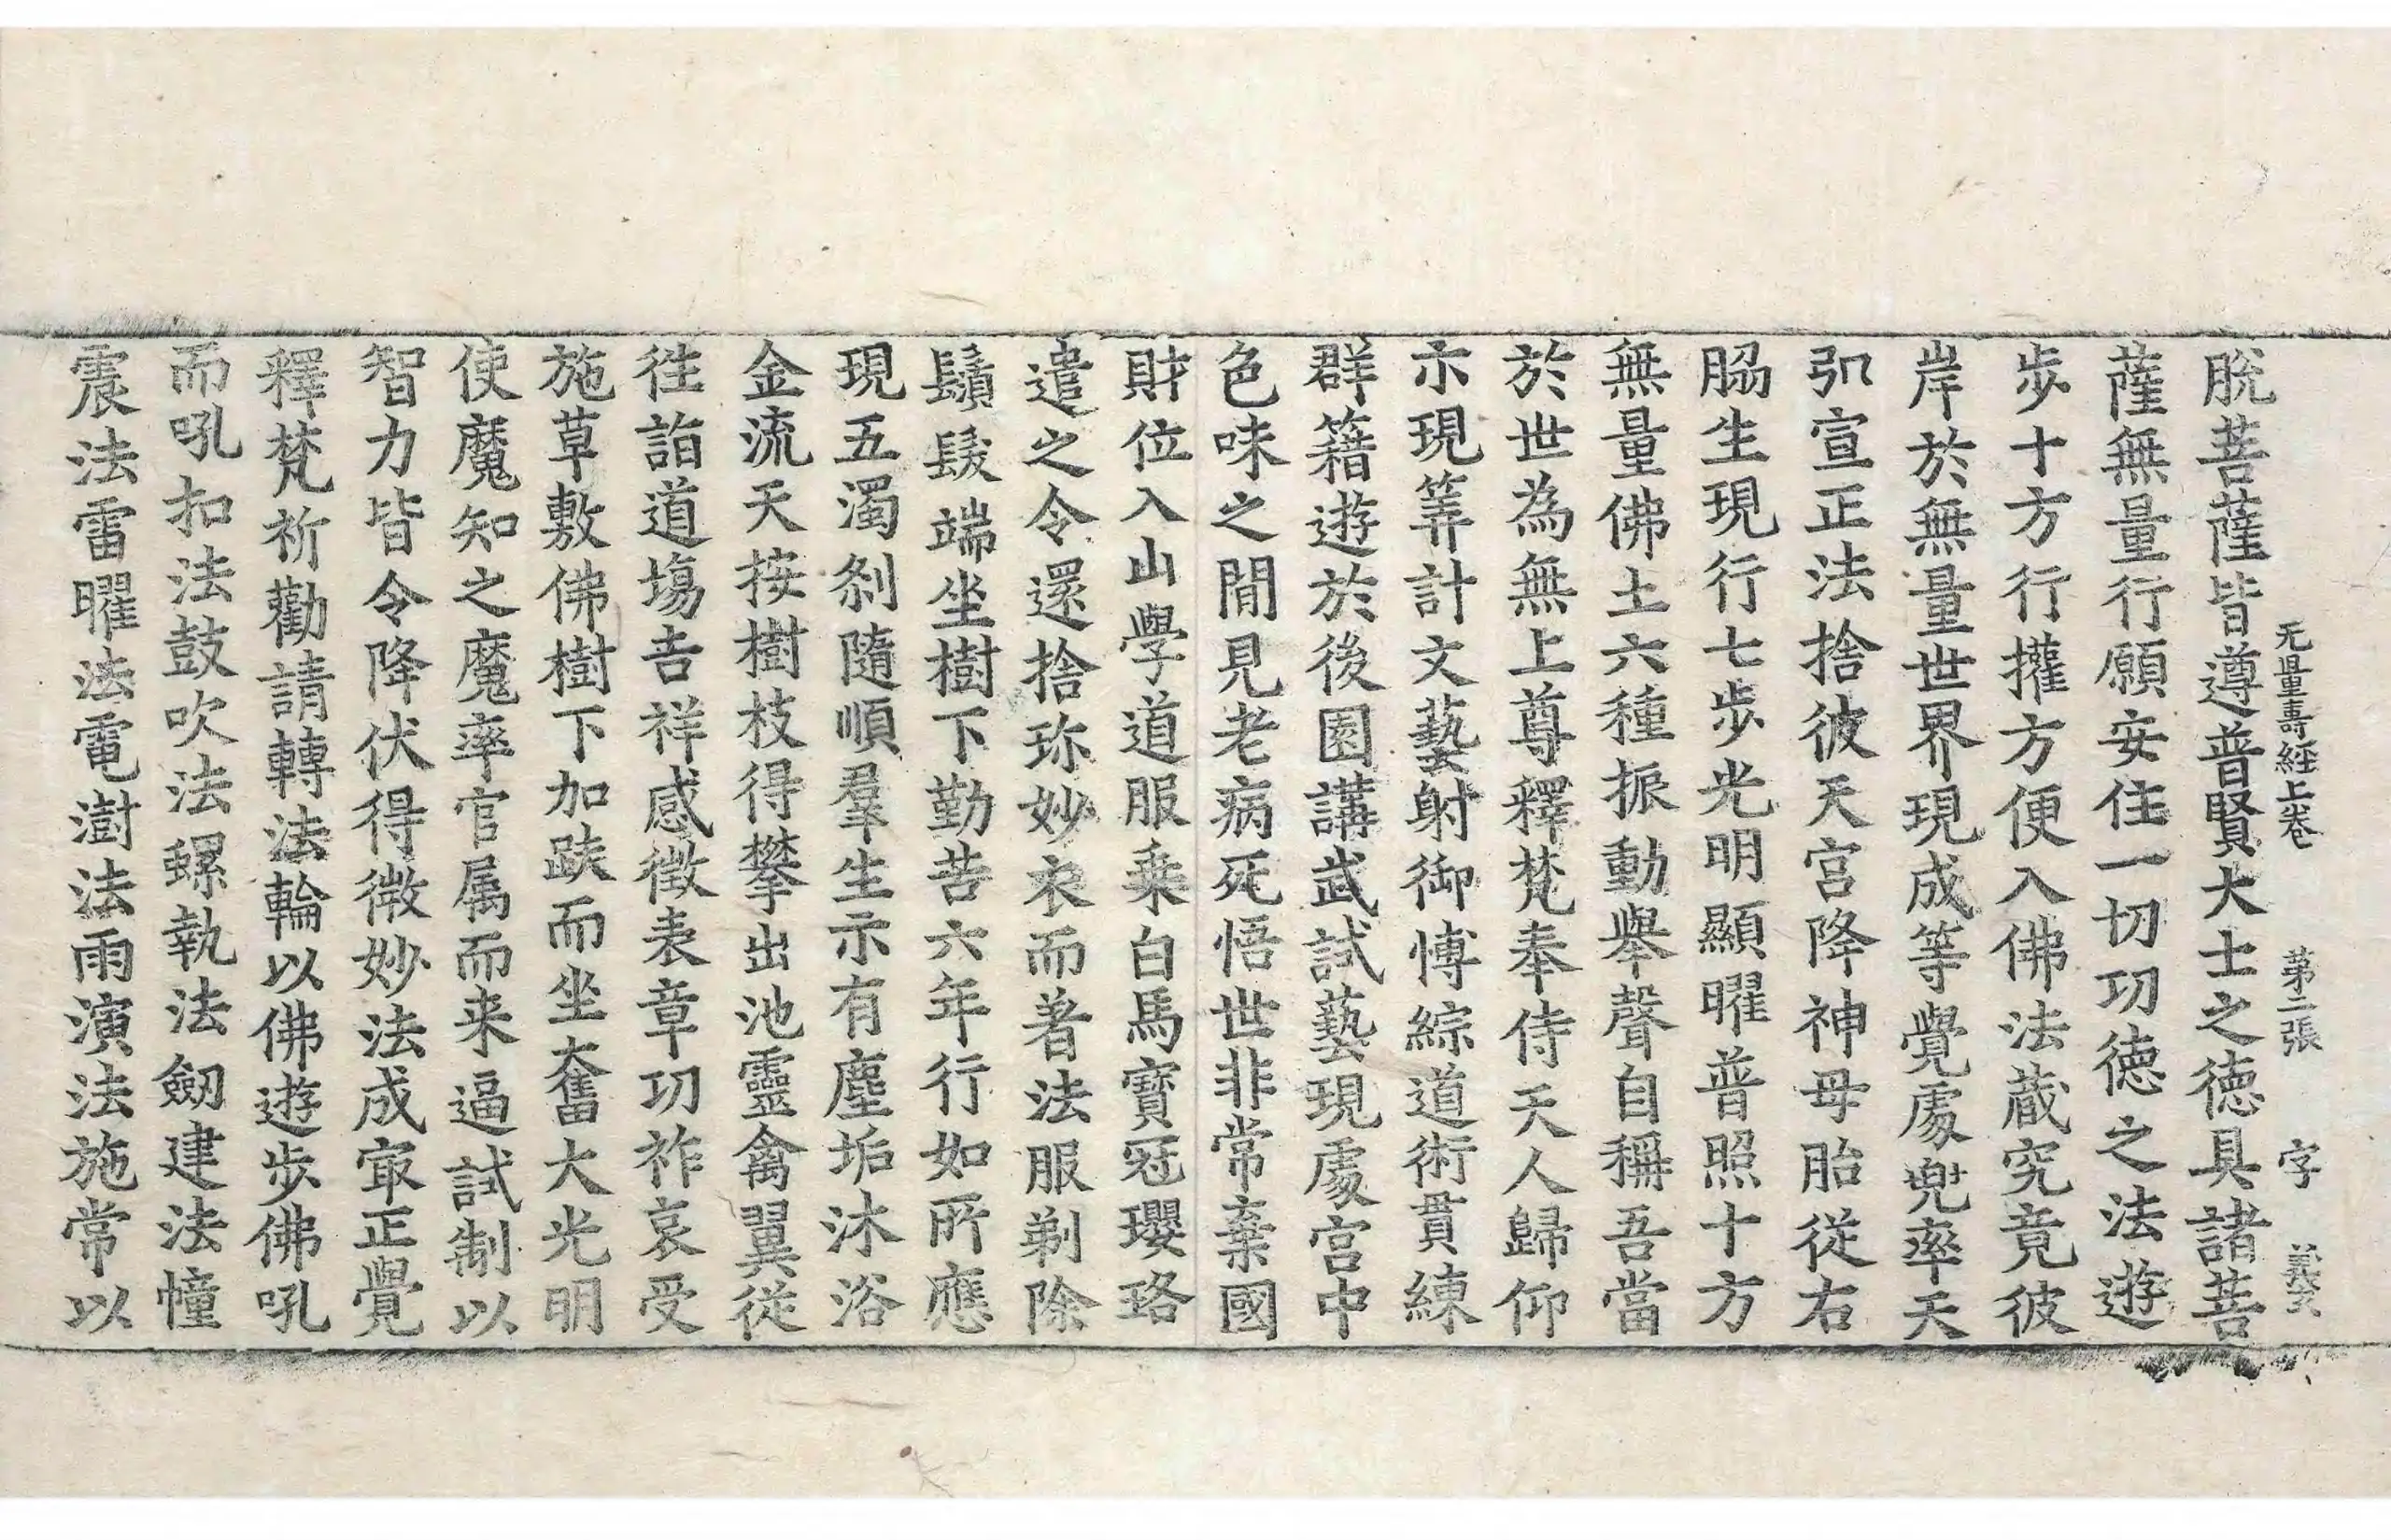 无量壽經上卷 第二張 字 義玄
脫菩薩皆遵普賢大士之德具諸菩
薩無量行願安住一切㓛德之法遊
步十方行㩲方便入佛法蔵究竟彼
岸於無量世界現成等覺處兜率天
弘宣正法捨彼天宮降神母胎從右
脇生現行七步光明顯曜普照十方
無量佛土六種振動舉聲自稱吾當
於世為無上尊釋梵奉侍天人歸仰
示現筭計文藝射御愽綜道術貫練
群籍遊於後園講武試藝現處宮中
色味之間見老病死悟世非常棄國
財位入山學道服乗白馬寶冠瓔珞
遣之令還捨珎妙衣而著法服剃除
鬚髮端坐樹下勤苦六年行如所應
現五濁刹隨順羣生示有塵垢沐浴
金流天按樹枝得攀出池靈禽翼從
徃詣道塲吉祥感徵表章㓛祚哀受
施草敷佛樹下加趺而坐奮大光明
使魔知之魔率官属而来逼試制以
智力皆令降伏得微妙法成㝡正覺
釋梵祈勸請轉法輪以佛遊步佛吼
而吼扣法鼓吹法螺執法劒建法幢
震法雷曜法電澍法雨演法施常以